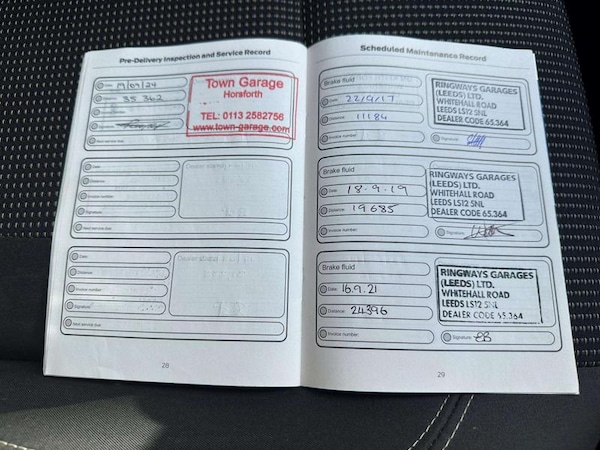 Pre-Delivery Inspection and Service Record
Date:
Distance:
35 362
Signature:
Next service due:
Town Garage
Horsforth
TEL: 0113 2582756
www.town-garage.com
Date:
Distance:
Invoice number:
Signature:
Next service due:
Dealer stamp
Date:
Distance:
Invoice number:
Signature:
Next service due:
Dealer stamp
28
Scheduled Maintenance Record
Brake fluid
Date: 22/9/17
Distance: 11184
Invoice number:
RINGWAYS GARAGES
(LEEDS) LTD.
WHITEHALL ROAD
LEEDS LS12 5NL
DEALER CODE 65.364
Signature:
Brake fluid
Date: 18-9-19
Distance: 19685
Invoice number:
RINGWAYS GARAGES
(LEEDS) LTD.
WHITEHALL ROAD
LEEDS LS12 5NL
DEALER CODE 65.364
Signature:
Brake fluid
Date: 16.9.21
Distance: 24396
Invoice number:
RINGWAYS GARAGES
(LEEDS) LTD.
WHITEHALL ROAD
LEEDS LS12 5NL
DEALER CODE 65.364
Signature:
29